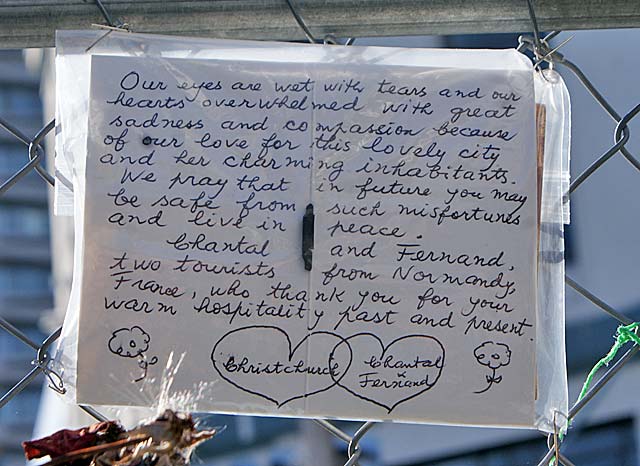 Our eyes are wet with tears and our
hearts overwhelmed with great
sadness and compassion because
of our love for this lovely city
and her charming inhabitants.
We pray that in future you may
be safe from such misfortunes
and live in peace.
Chantal and Fernand,
two tourists from Normandy,
France, who thank you for your
warm hospitality past and present.
Christchurch
Chantal
&
Fernand